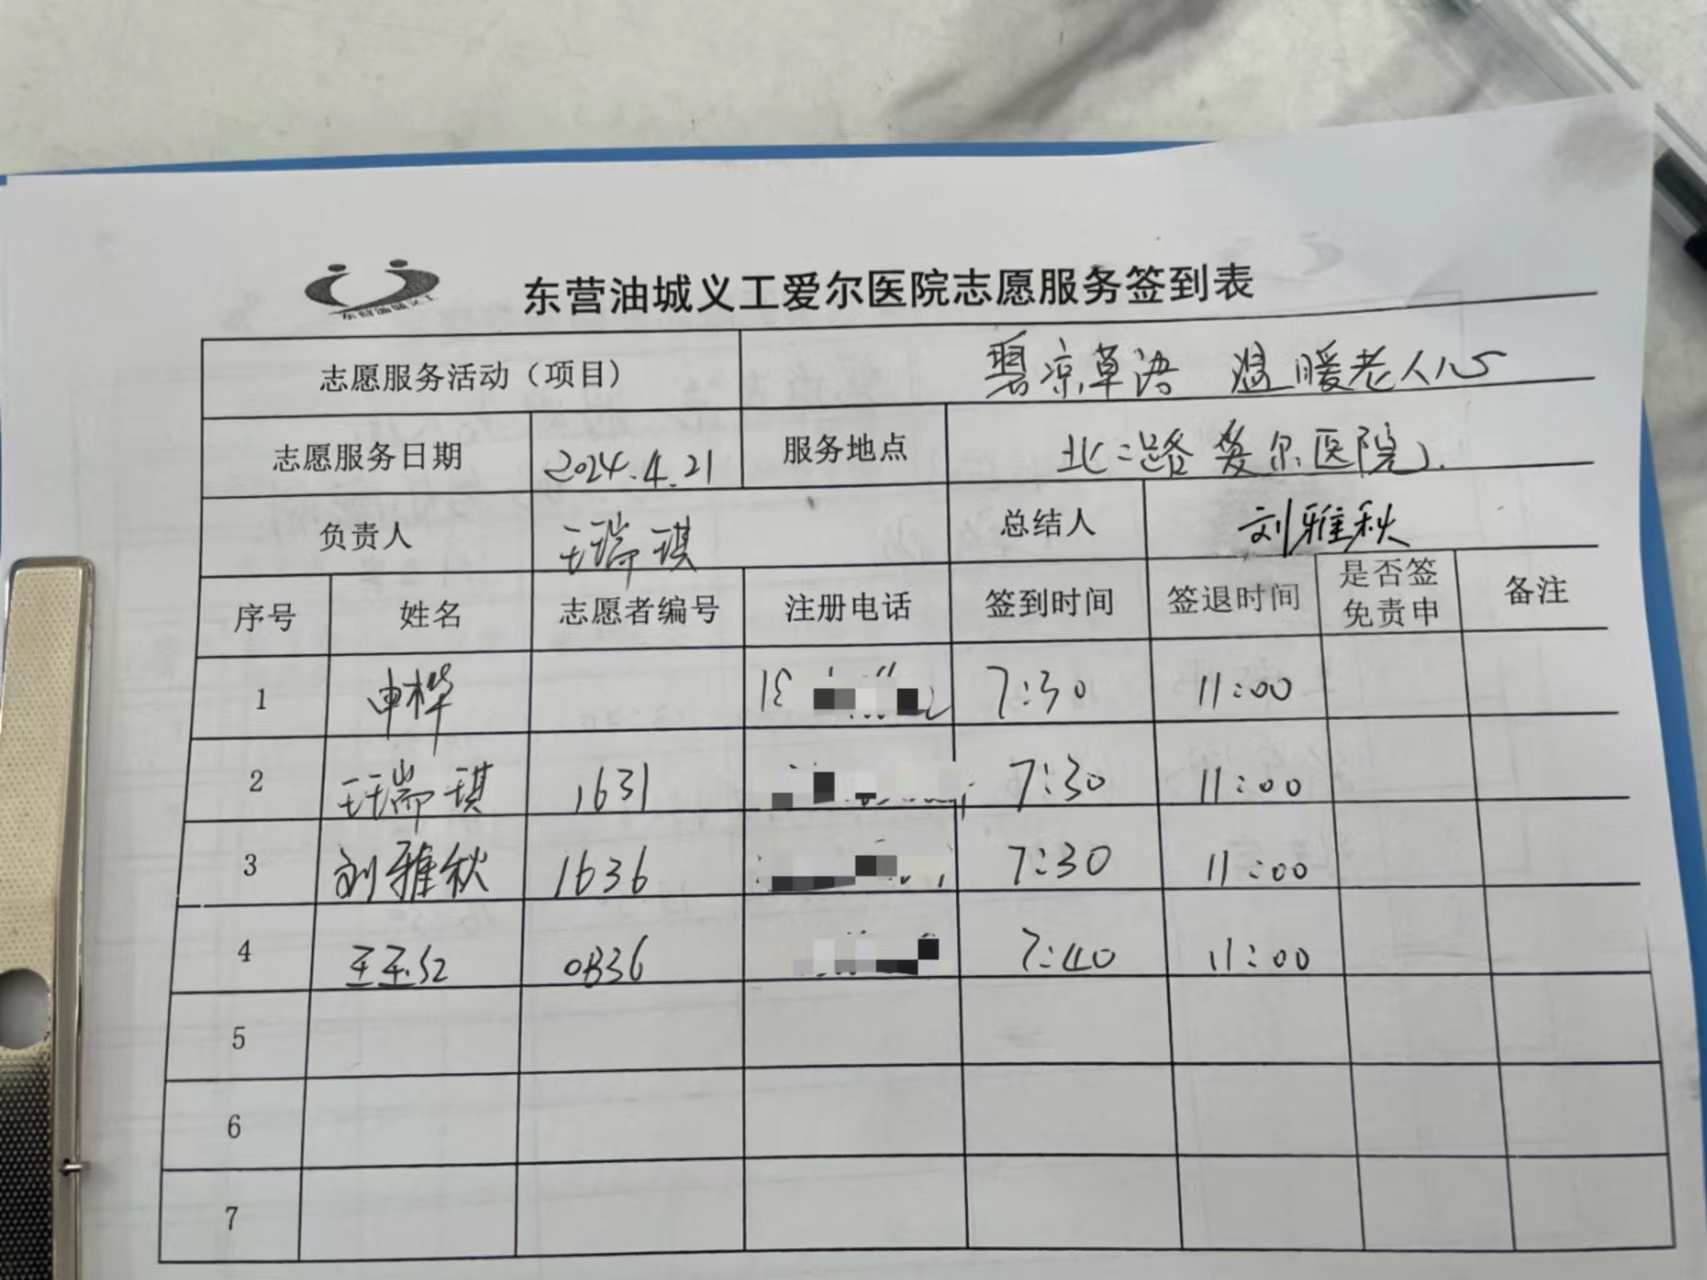 东营油城义工
东营油城义工爱尔医院志愿服务签到表
志愿服务活动（项目） 碧凉草语 温暖老人心
志愿服务日期 2024.4.21 服务地点 北二路爱尔医院
负责人 王瑞琪 总结人 刘雅秋
序号 姓名 志愿者编号 注册电话 签到时间 签退时间 是否签免责申 备注
1 申桦 7:30 11:00
2 王瑞琪 1631 7:30 11:00
3 刘雅秋 1636 7:30 11:00
4 王玉红 0836 7:40 11:00
5
6
7